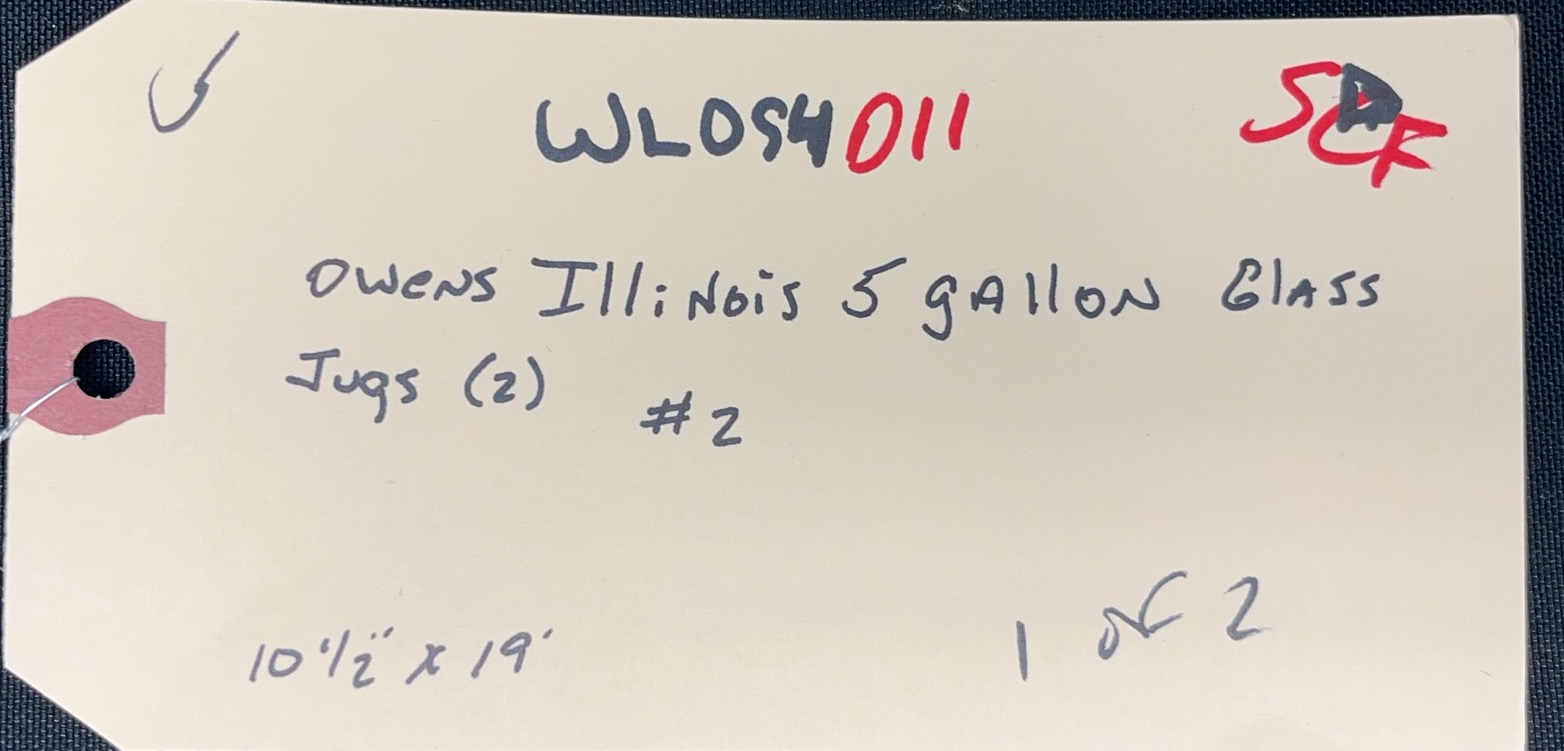 WL094011
SCF
Owens Illinois 5 gallon Glass
Jugs (2) #2
10 1/2" x 19"
1 of 2